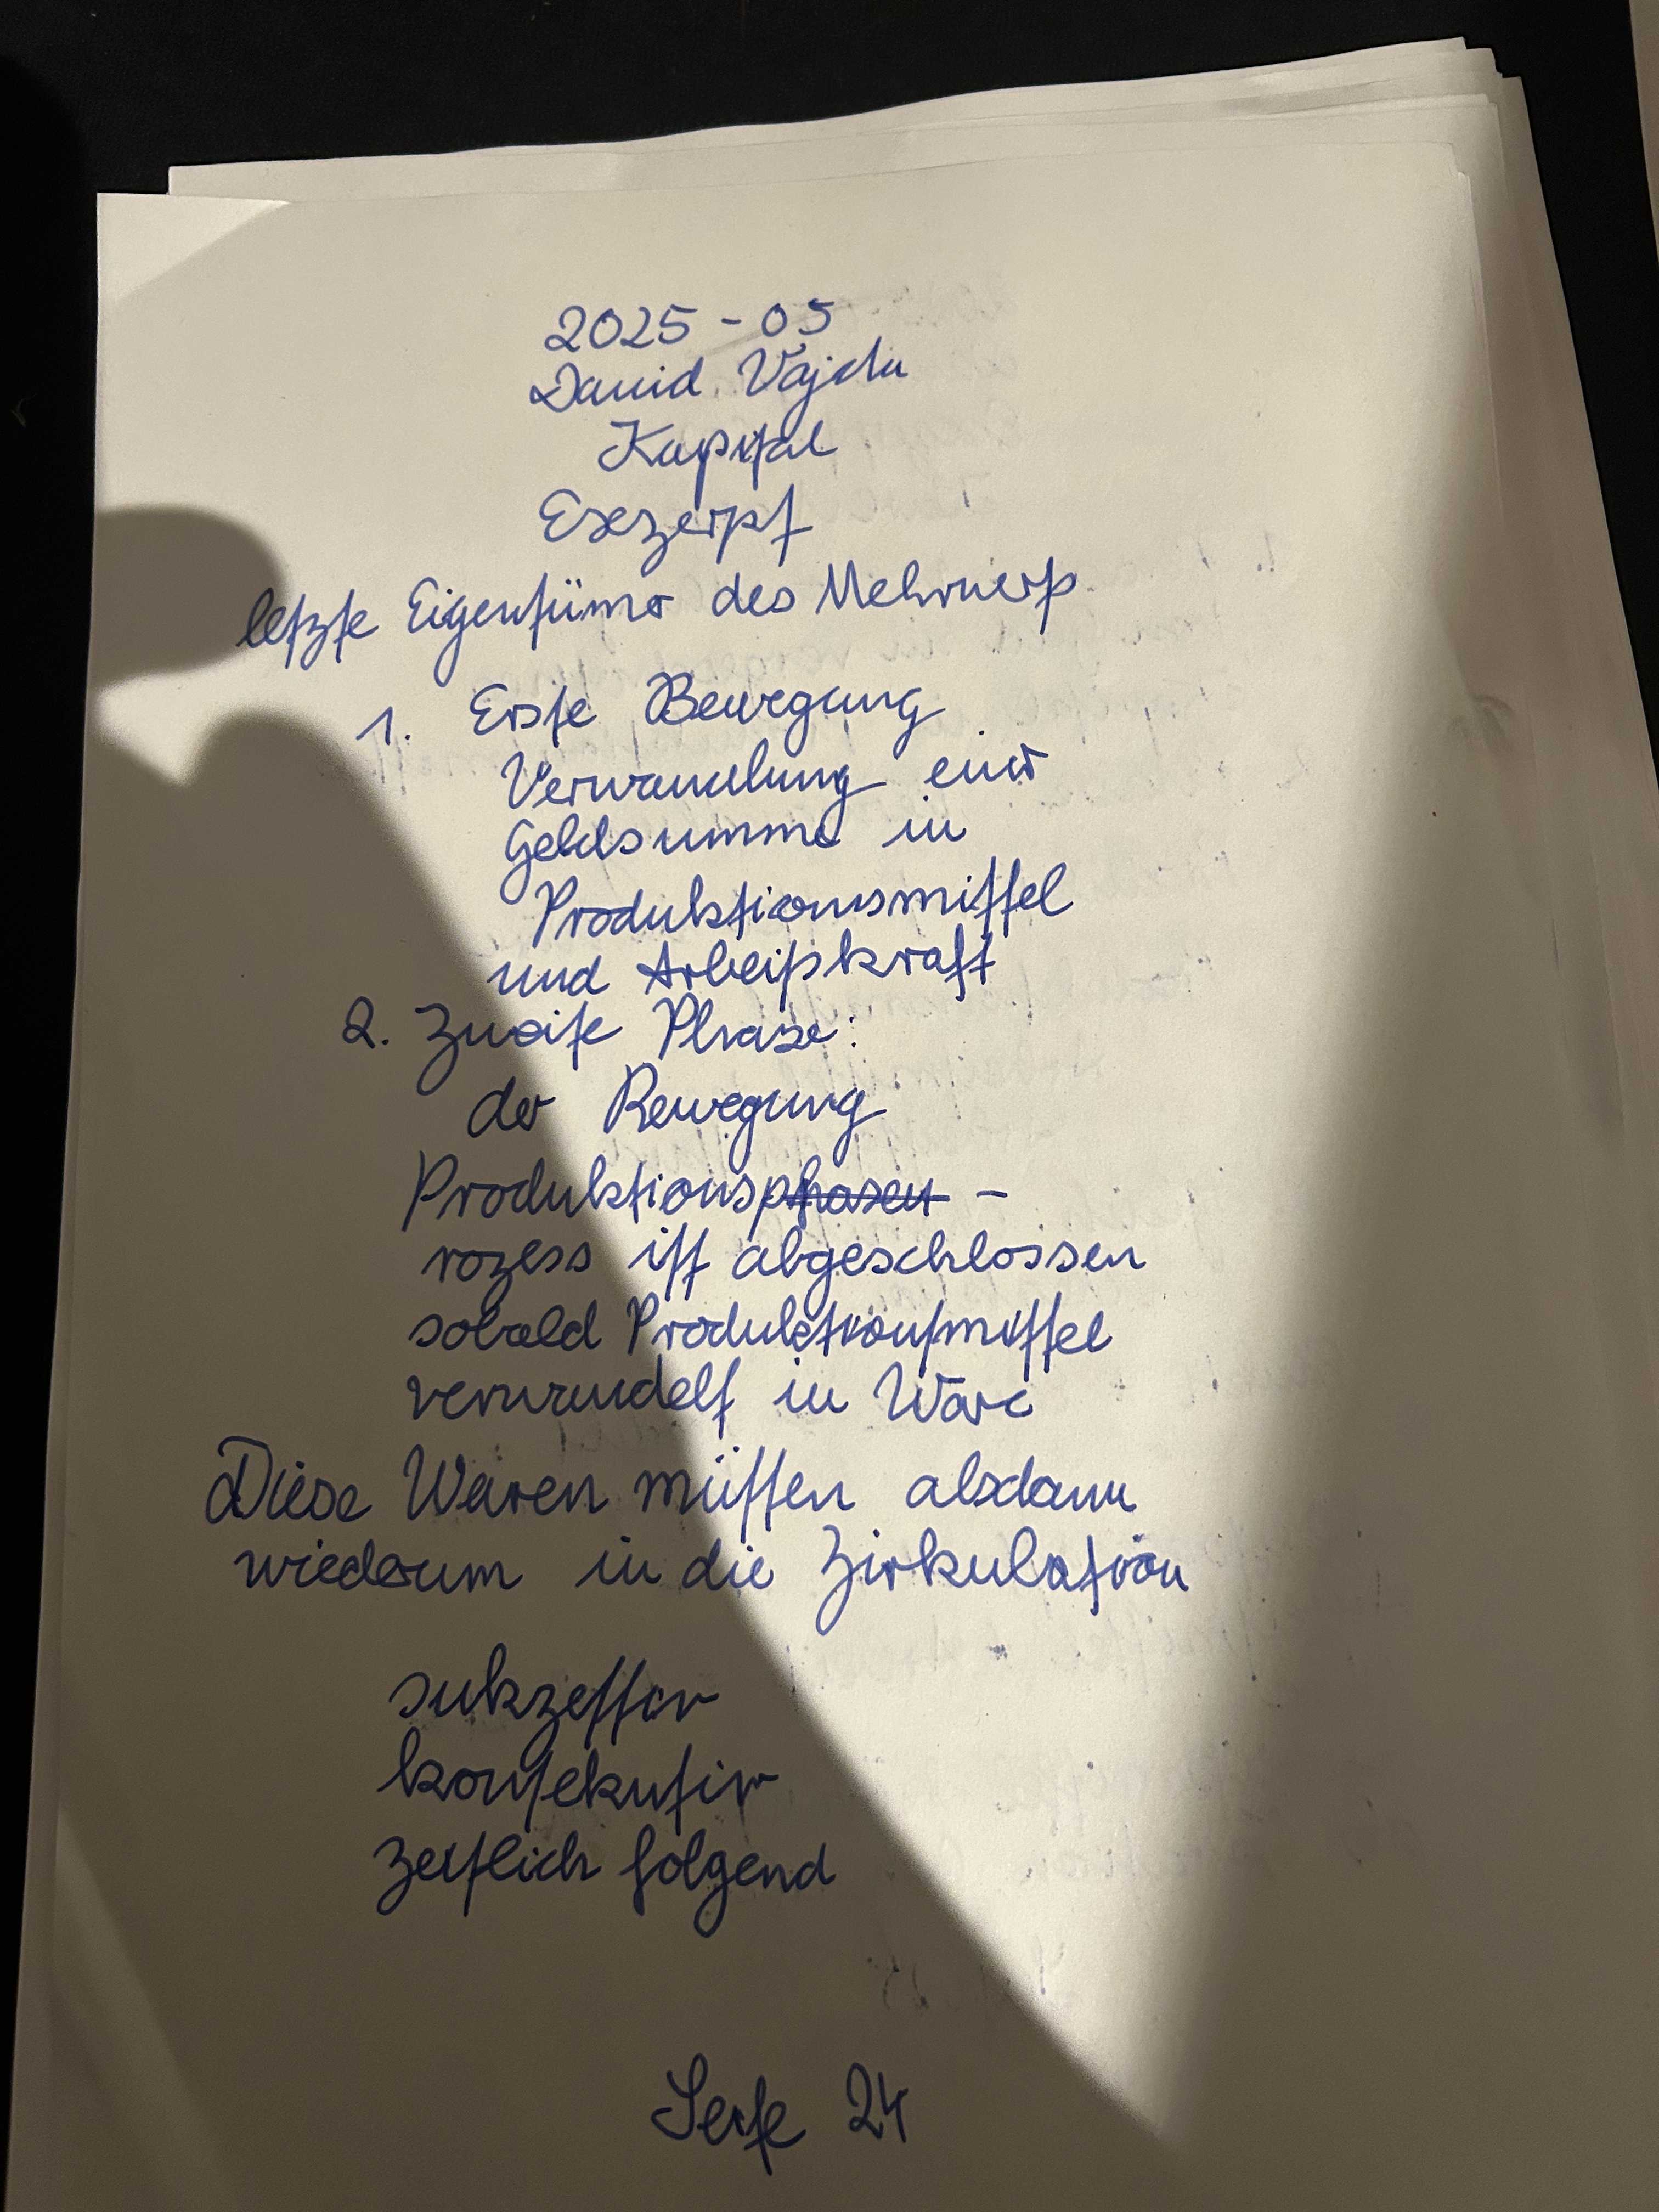 2025-05
David Vajda
Kapital
Exzerpt
letzte Eigentümer des Mehrwerts
1. Erste Bewegung
Verwandlung einer
Geldsumme in
Produktionsmittel
und Arbeitskraft
2. Zweite Phase:
der Bewegung
Produktionsphasen -
rozess ist abgeschlossen
sobald Produktionsmittel
verwandelt in Ware
Diese Waren müssen alsdann
wiederum in die Zirkulation
sukzessiv
konsekutiv
zeitlich folgend
Seite 24